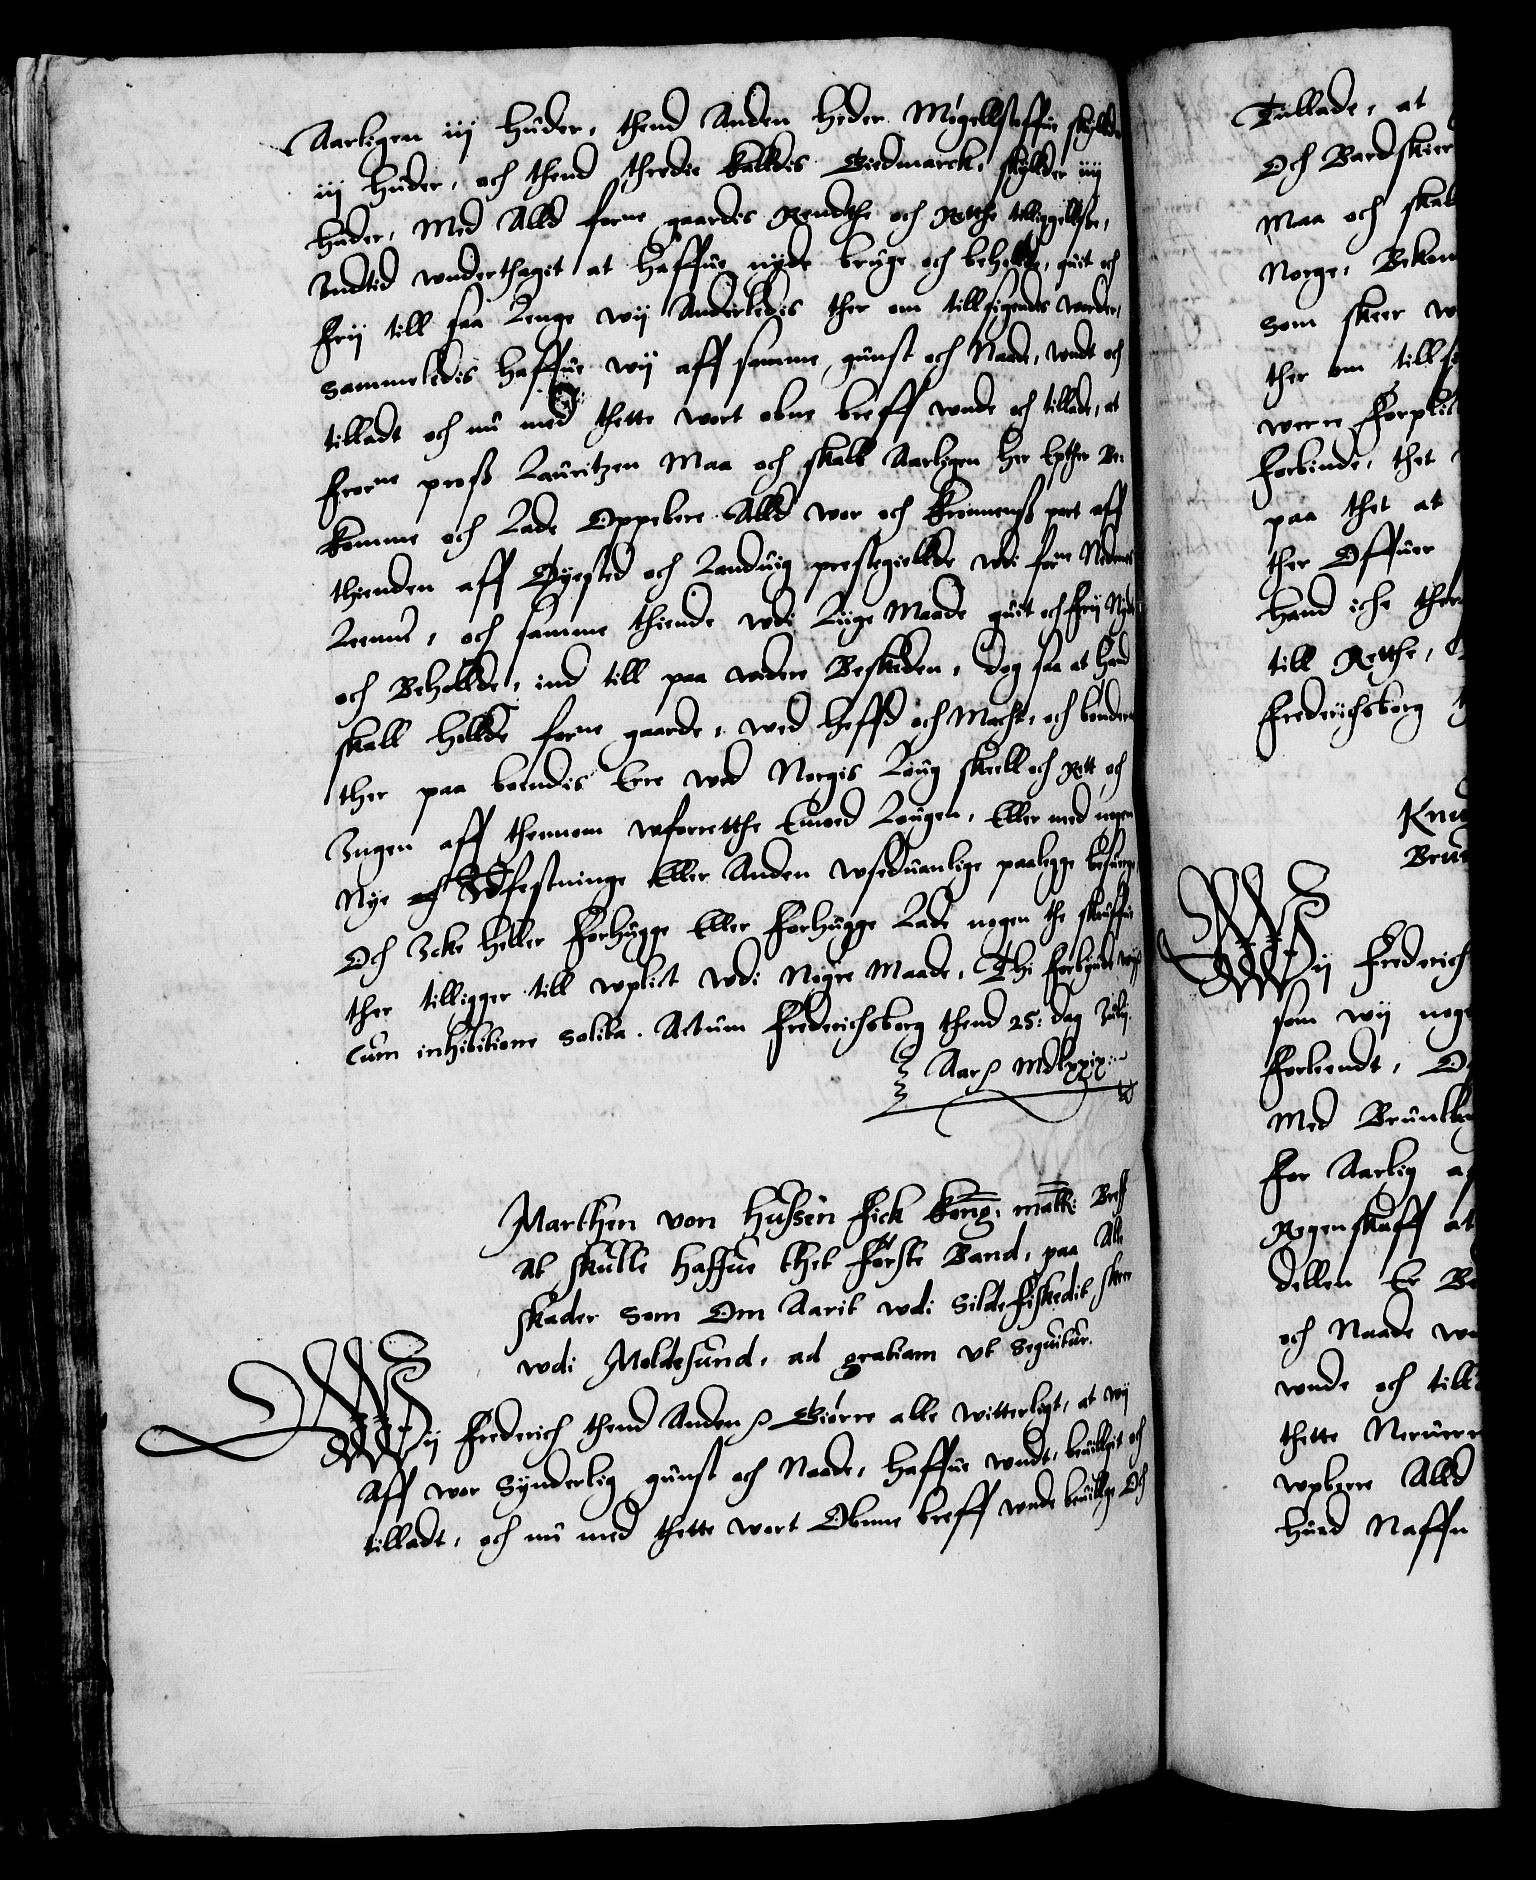 Aarligen iij huder, thend Anden heder Migellstoffue skyllder
iij huder, och thend thredie kalldis Giedmarck, skyllder iiij
huder, Med Alld forne gaardis Rendthe och Rette tilliggellsse,
Indtid wnderthagit at haffue nyde bruge och beholde, quit och
frij till saa Lenge wij Anderledis ther om tillsigendes worder,
Sammeledis haffue wij aff samme gunst och Naade, wndt och
tilladt och nu med thette wort obne breff wnde och tillade, at
forne proff Lauritzen Maa och skall Aarligen her Epther Be-
komme och Lade Oppebere Alld wor och Kronenss part aff
thienden aff Øyested och Landuig prestegiellde wdi forne Nedenes
Leenn, och samme thiende wdi Liige Maade quit och frij Nyde
och Behollde, ind till paa widere Beskeden, dog saa at hand
skall hollde forne gaarde, wed heffd och Macht, och bønderne
ther paa boendis Erre wed Norgis Loug skiell och Rett och
Ingen aff thennom wforretthe Emoed Lougen, Eller med nogen
Nye Indfestninge Eller Anden wseduanlige paalegge besuerge,
Och Icke heller Forhugge Eller Forhugge Lade nogen the skouffue
ther tilligger till wplict wdi Nogre Maade, Thi forbiude wij
Cum inhibitione solita. Actum Frederichsborg thend 25: dag Julij
Aar Mdlxxix
Marthen von Hussen Fick Kong: matt: Breff
At skulle haffue thet Første Band, paa Alle
skader som Om Aarit wdi Sildefiskedit skeer
wdi Moldesund, ad gratiam vt sequitur.
Wij Frederich thend Anden Giørre alle witterligt, at wij
Aff wor Synderlig gunst och Naade, haffue wndt, beuilgit och
tilladt, och nu med thette wort Obnne breff wnde beuillge Och
Tillade, at
Och Bardskier
Maa och skal
Norge, Bekom
som skeer w
ther om tills
werre Forplict
Forbinde, thet
paa thet at
ther Offuer
hand icke ther
till Retthe,
Frederichsborg
Knu
Brun
Wij Frederich
som wij nog
Forleendt, O
Med Brunla
For Aarlig a
Regenskaff at
dellen Er Be
och Naade wn
wnde och till
thette Neruer
wpberre Alld
huad Naffn